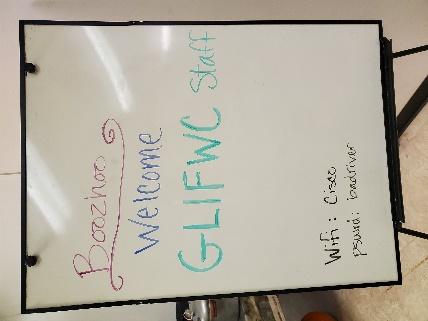 Boozhoo
Welcome
GLIFWC Staff
Wifi: Cisco
pswd: badriver